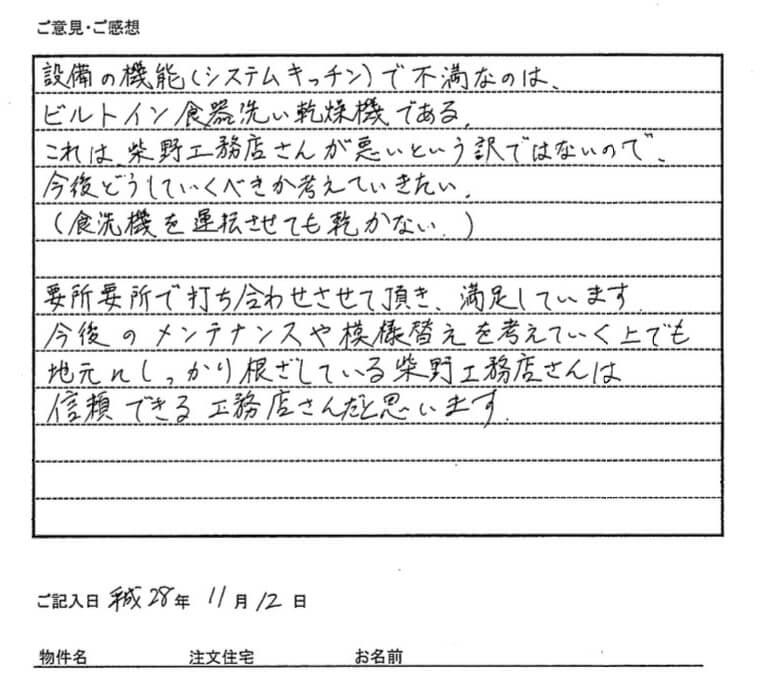 ご意見・ご感想
設備の機能(システムキッチン)で不満なのは、
ビルトイン食器洗い乾燥機である。
これは、柴野工務店さんが悪いという訳ではないので、
今後どうしていくべきか考えていきたい。
(食洗機を運転させても乾かない。)
要所要所で打ち合わせさせて頂き、満足しています。
今後のメンテナンスや模様替えを考えていく上でも
地元にしっかり根ざしている柴野工務店さんは
信頼できる工務店さんだと思います。
ご記入日 平成28年 11月12日
物件名 注文住宅 お名前